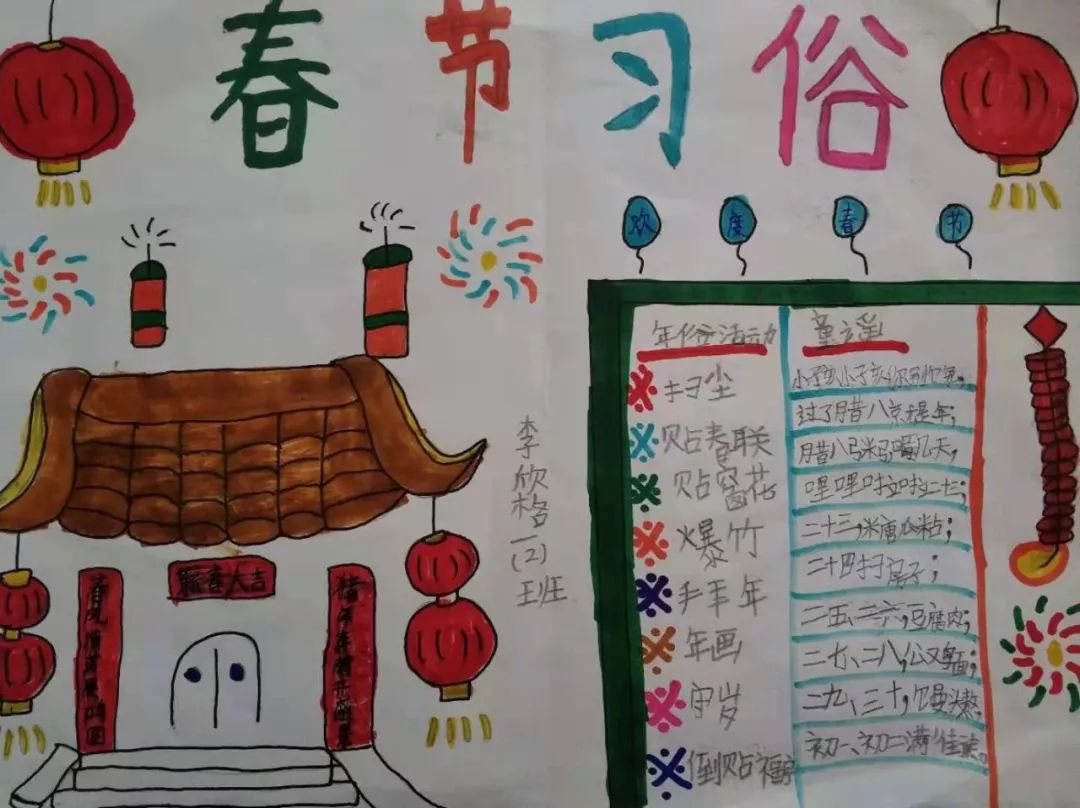 春节习俗
欢度春节
李欣格一(2)班
春大吉
年俗活动
扫尘
贴春联
贴窗花
爆竹
拜年
年画
守岁
倒贴福
童谣
小孩小孩你别馋;
过了腊八就是年;
腊八粥喝几天,
哩哩啦啦二十三;
二十三,糖瓜粘;
二十四扫房子;
二五、二六,豆腐肉;
二七、二八,公鸡面;
二九、三十,馒头熬.
初一、初二满街走.